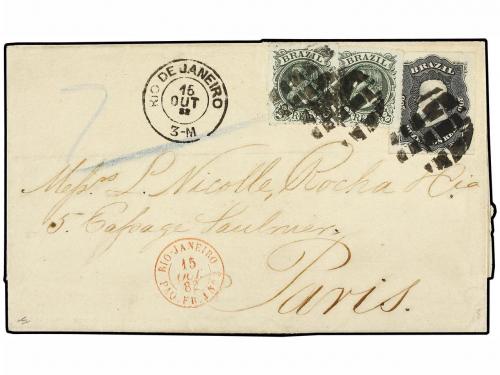 BRAZIL BRAZIL BRAZIL
RIO DE JANEIRO
15
OUT
82
3-M
Messrs L. Nicolle, Rocha & Cia
5. Passage Saulnier.
RIO-JANEIRO
15
OUT
82
PAQ. FR.
Paris.